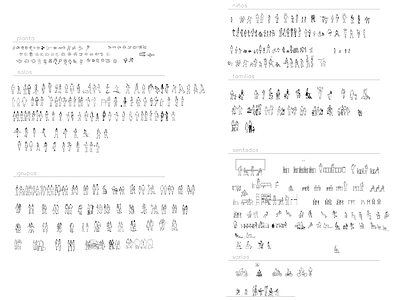 planta
solos
grupos
niños
familias
sentados
varios